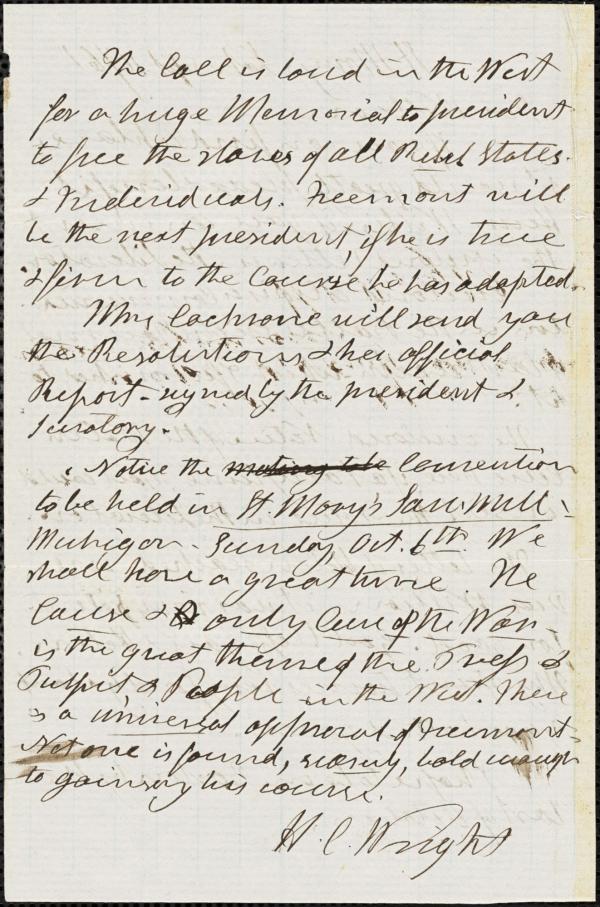 The Call is loud in the West
for a huge Memorial to president
to free the slaves of all Rebel States
& Individuals. Freemont will
be the next president, if he is true
& firm to the Course he has adopted.
Mrs Cochrone will send you
the Resolutions & her official
Report - signed by the president &
Secratory.
Notice the Convention
to be held in St. Mary's Saw Mill -
Michigan - Sunday Oct. 6th. We
shall have a great time. The
Cause & only Cure of the War -
is the great theme of the Press &
Pulpit & People in the West. There
is a universal approval of Freemont -
Not one is found, scarcely, bold enough
to gainsay his course.
H. C. Wright